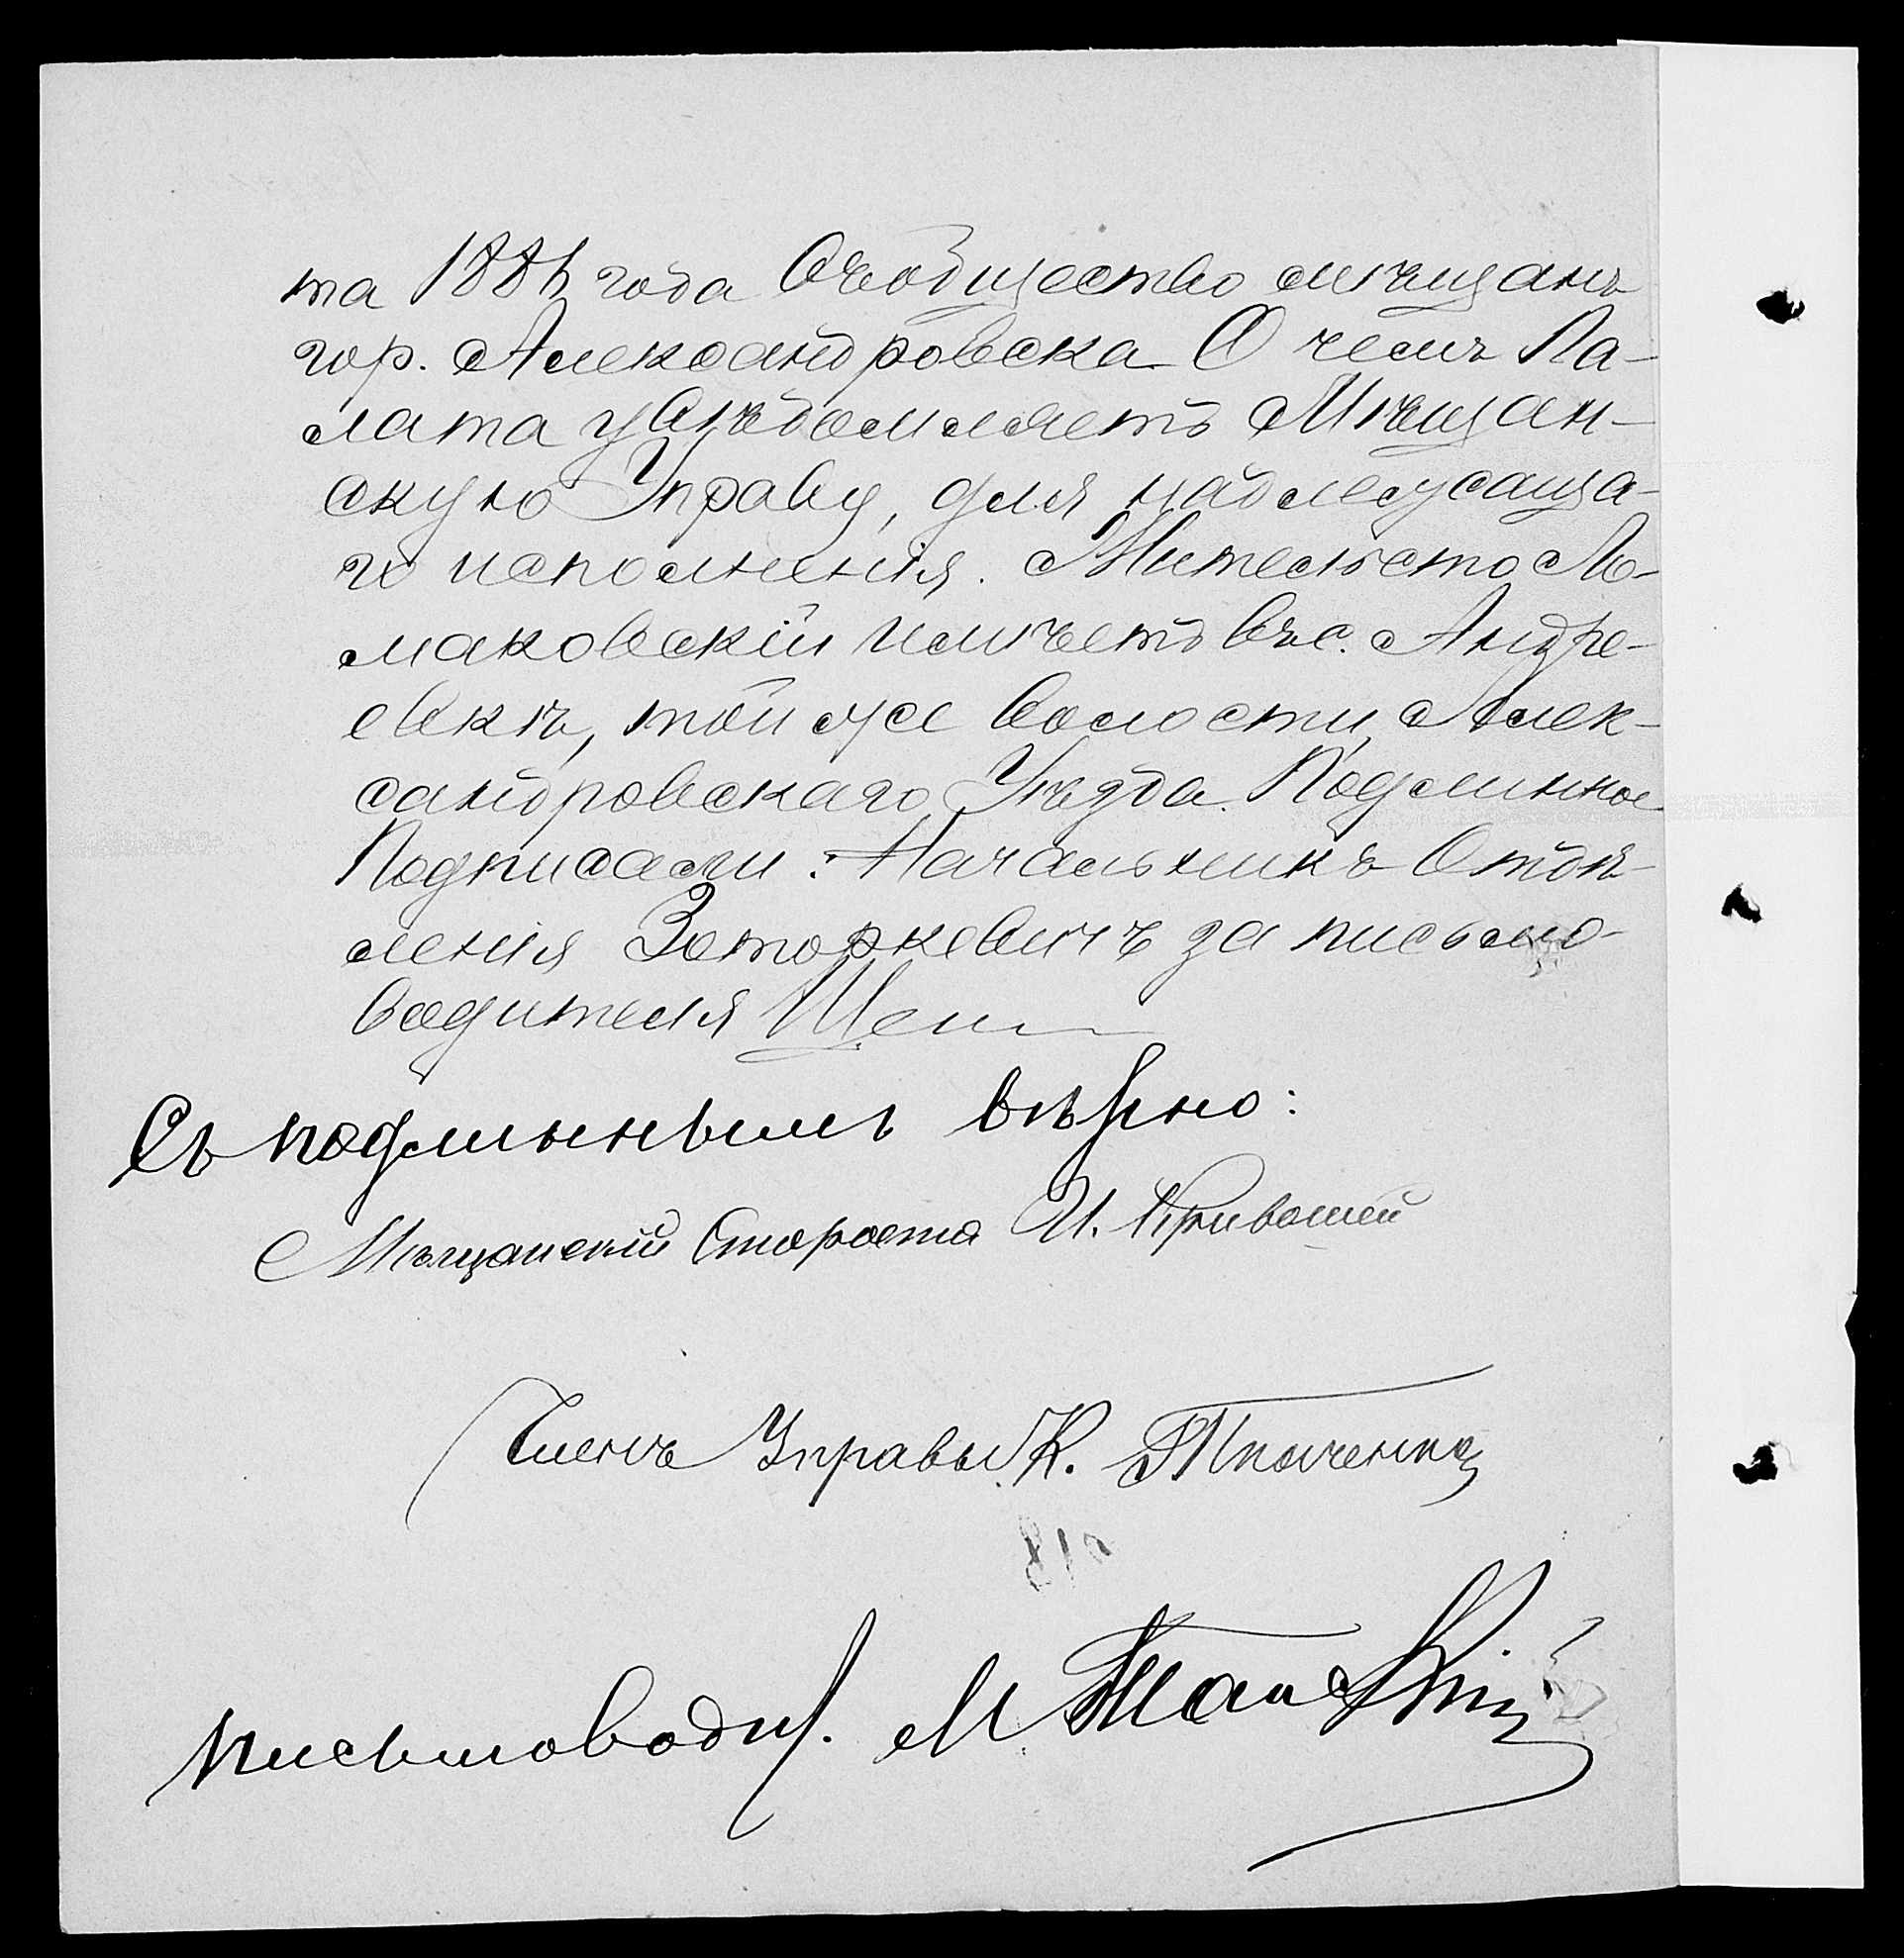 та 1886 года Въ общество мѣщанъ
гор. Александровска О чемъ Па-
лата увѣдомляетъ Мѣщан-
скую Управу, для надлежаща-
го исполненія. Жительсто Ло-
маковскій имѣетъ въ с. Андре-
евкѣ, той же волости, Алек-
сандровскаго Уѣзда. Подлинное
Подписали: Начальникъ Отдѣ-
ленія Зеторкевичъ за письмо-
водителя
Съ подлиннымъ вѣрно:
Мѣщанскій Староста И. Кривошей
Членъ Управы К. Ткаченко
Письмовод. М